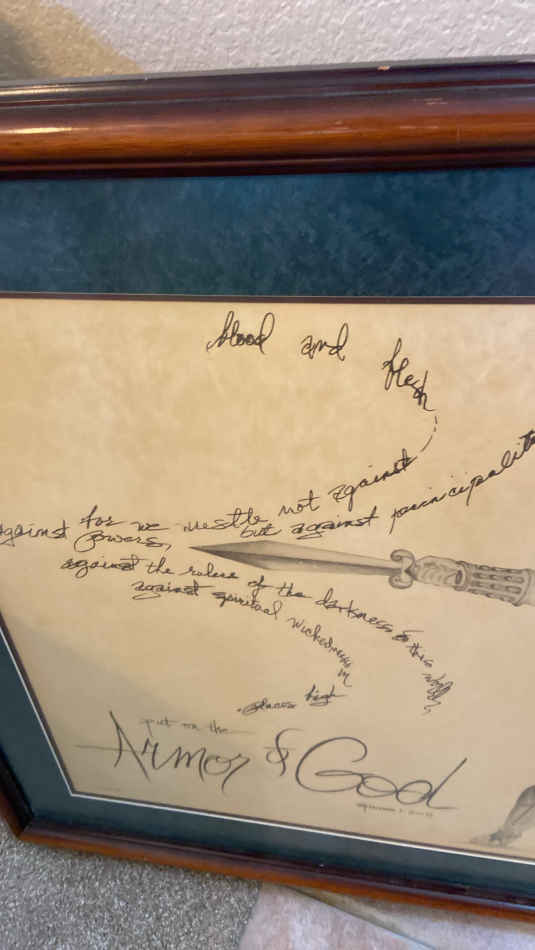 blood and flesh
for we wrestle not against
but against principalit
against
powers,
against the rulers of the darkness of this world,
against spiritual wickedness in
places high
put on the
Armor of God